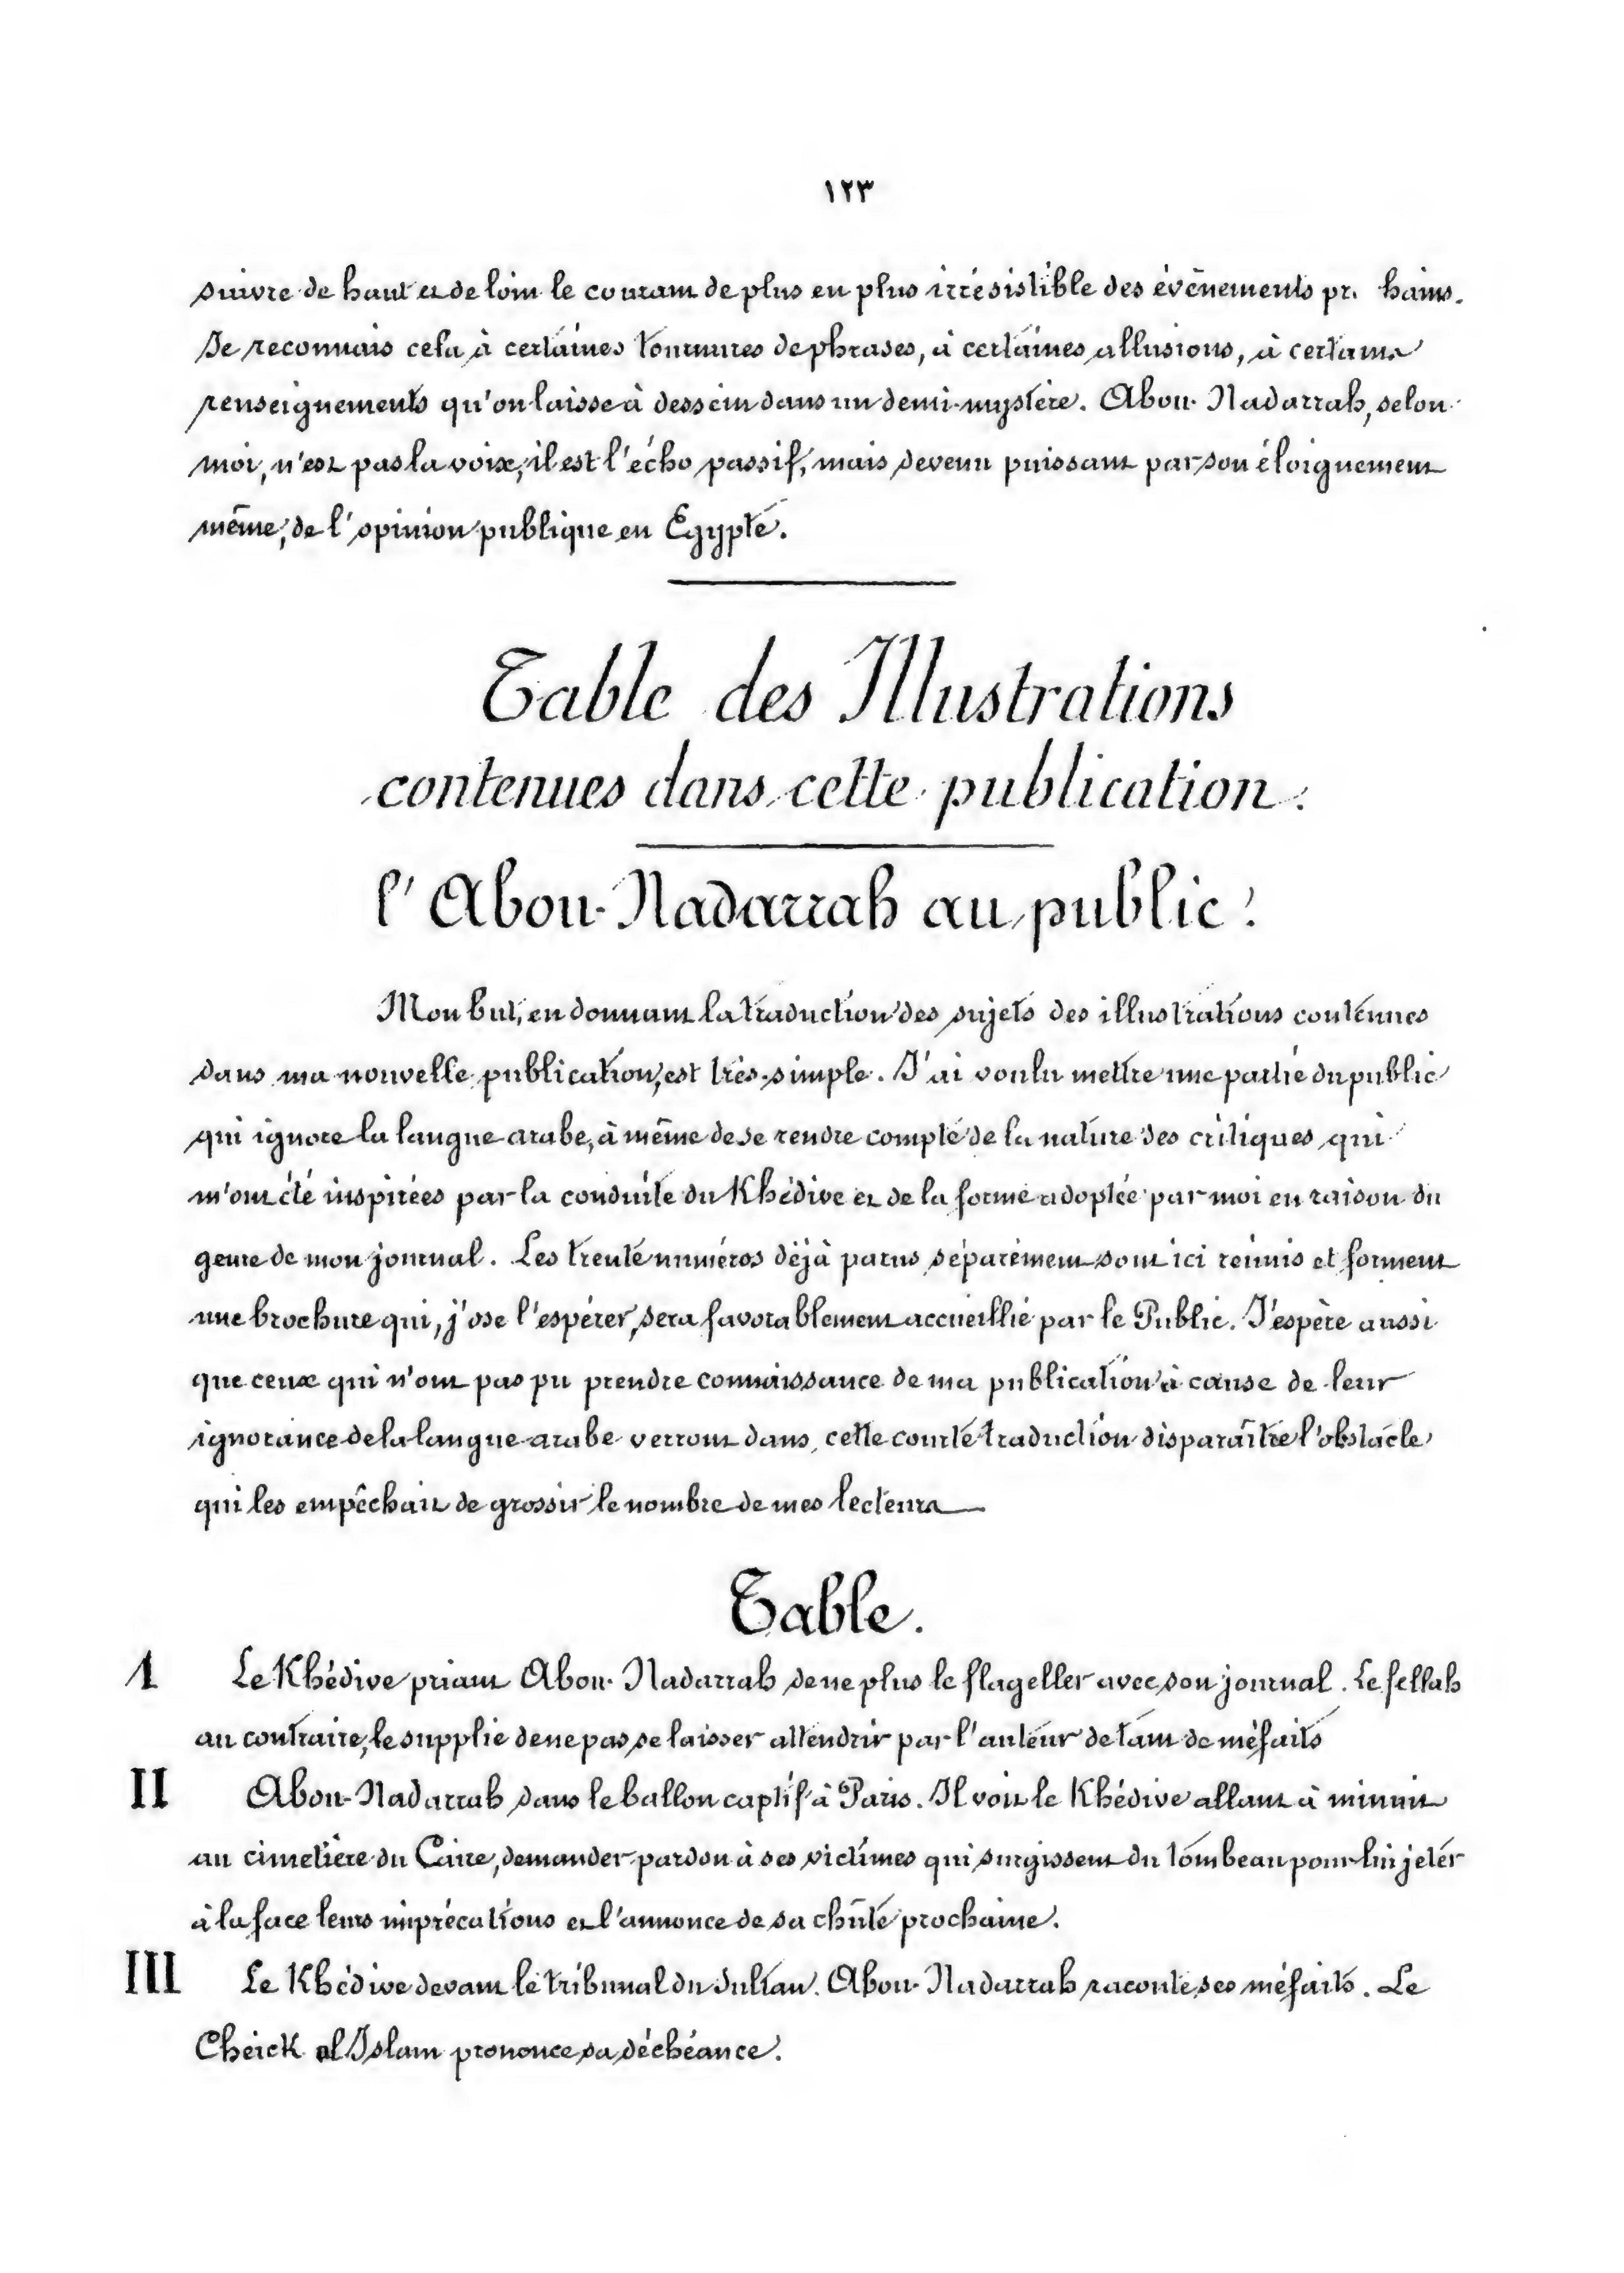 ١٢٣
suivre de haut et de loin le courant de plus en plus irrésistible des évènements pr hains.
Je reconnais cela à certaines tournures de phrases, à certaines allusions, à certains
renseignements qu'on laisse à dessein dans un demi-mystère. Abou-Nadarrah, selon
moi, n'est pas la voix, il est l'écho passif, mais devenu puissant par son éloignement
même, de l'opinion publique en Egypte.
Table des Illustrations
contenues dans cette publication.
l'Abou-Nadarrah au public!
Mon but, en donnant la traduction des sujets des illustrations contenues
dans ma nouvelle publication, est très-simple. J'ai voulu mettre une partie du public
qui ignore la langue arabe, à même de se rendre compte de la nature des critiques qui
m'ont été inspirées par la conduite du Khédive et de la forme adoptée par moi en raison du
genre de mon journal. Les trente numéros déjà parus séparément sont ici réunis et forment
une brochure qui, j'ose l'espérer, sera favorablement accueillie par le Public. J'espère aussi
que ceux qui n'ont pas pu prendre connaissance de ma publication à cause de leur
ignorance de la langue arabe verront dans cette courte traduction disparaître l'obstacle
qui les empêchait de grossir le nombre de mes lecteurs
Table.
1 Le Khédive priant Abou-Nadarrah de ne plus le flageller avec son journal. Le fellah
au contraire, le supplie de ne pas se laisser attendrir par l'auteur de tant de méfaits
II Abou-Nadarrah dans le ballon captif à Paris. Il voit le Khédive allant à minuit
au cimetière du Caire, demander pardon à ses victimes qui surgissent du tombeau pour lui jeter
à la face leurs imprécations et l'annonce de sa chûte prochaine.
III Le Khédive devant le tribunal du Sultan. Abou-Nadarrah raconte ses méfaits. Le
Cheick al Islam prononce sa déchéance.